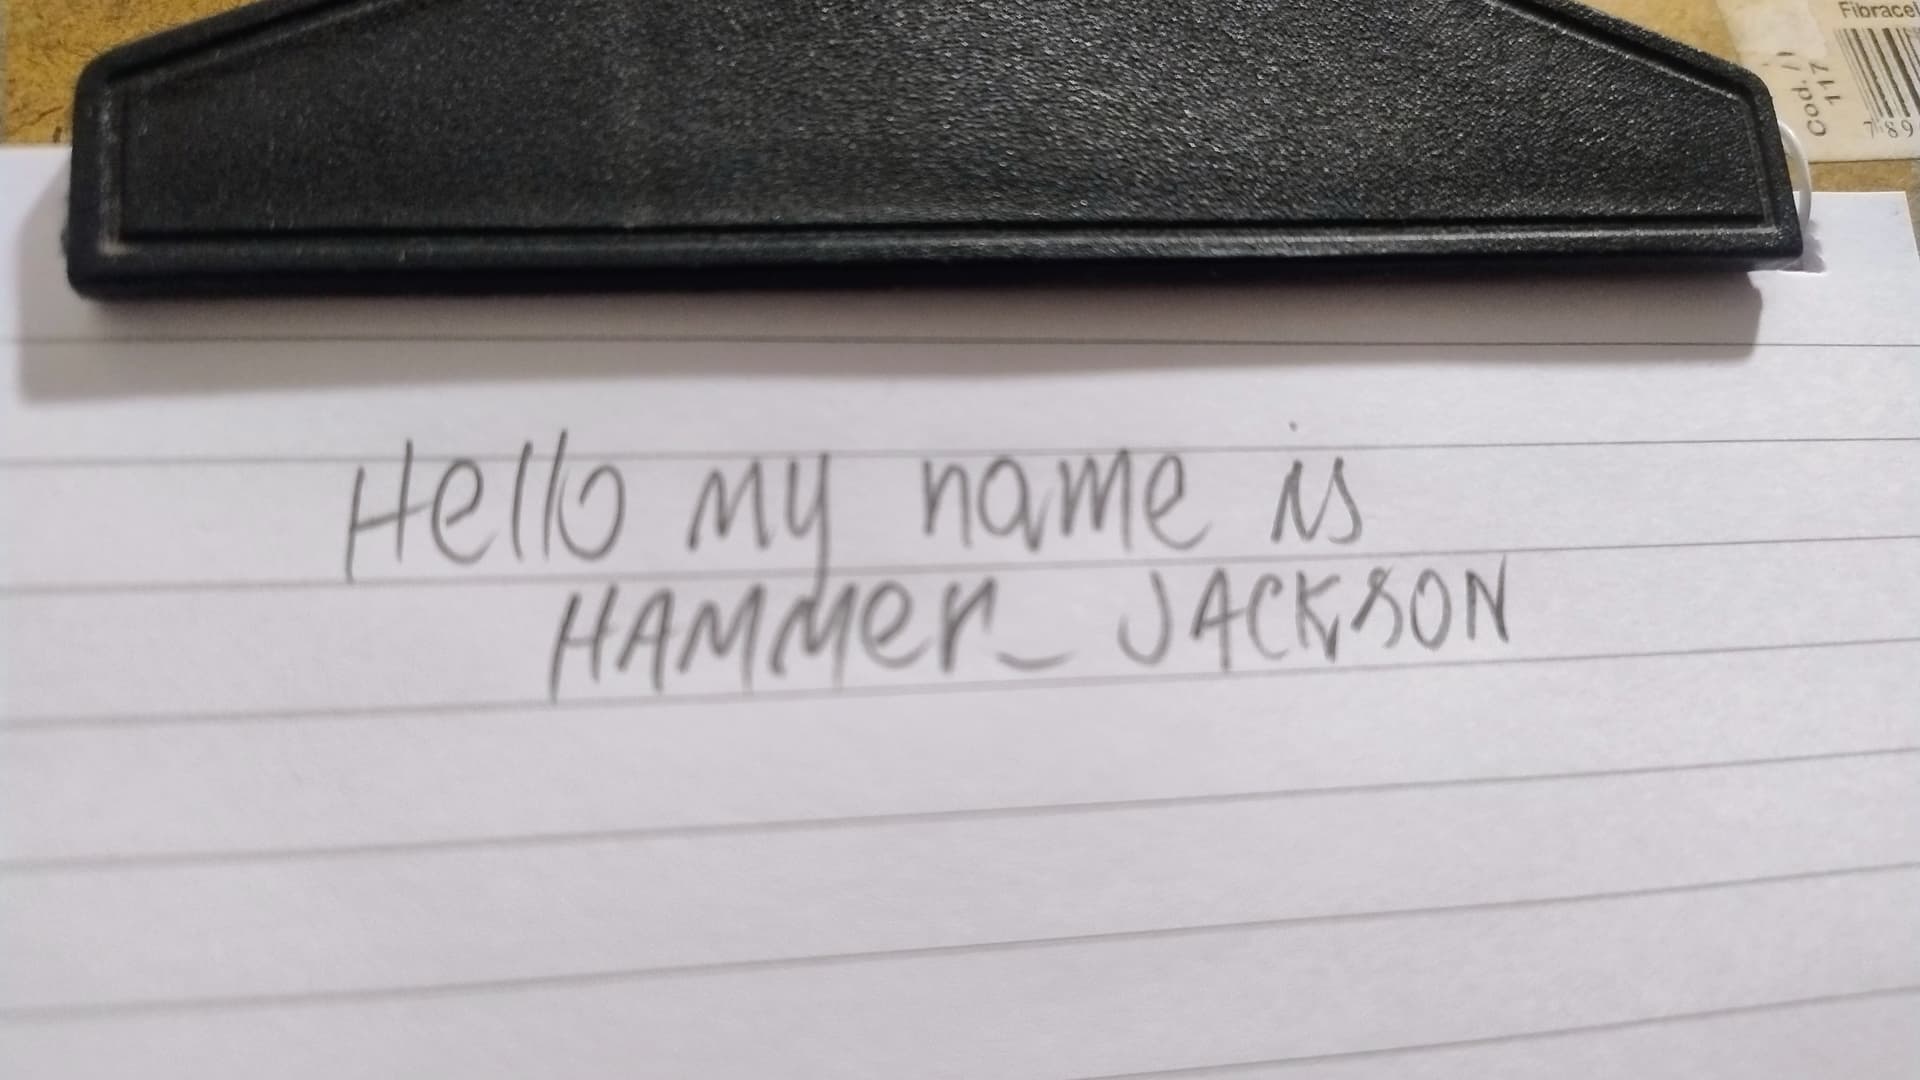 Fibracel
Cod. 117
789
Hello my name is
HAMMer_ JACKSON